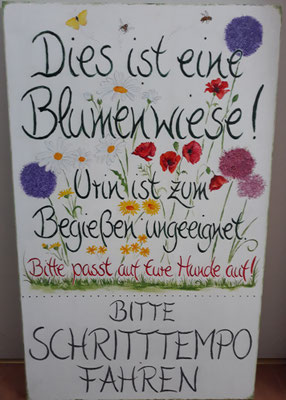 Dies ist eine
Blumenwiese!
Urin ist zum
Begießen ungeeignet.
Bitte passt auf Eure Hunde auf!
BITTE
SCHRITTTEMPO
FAHREN